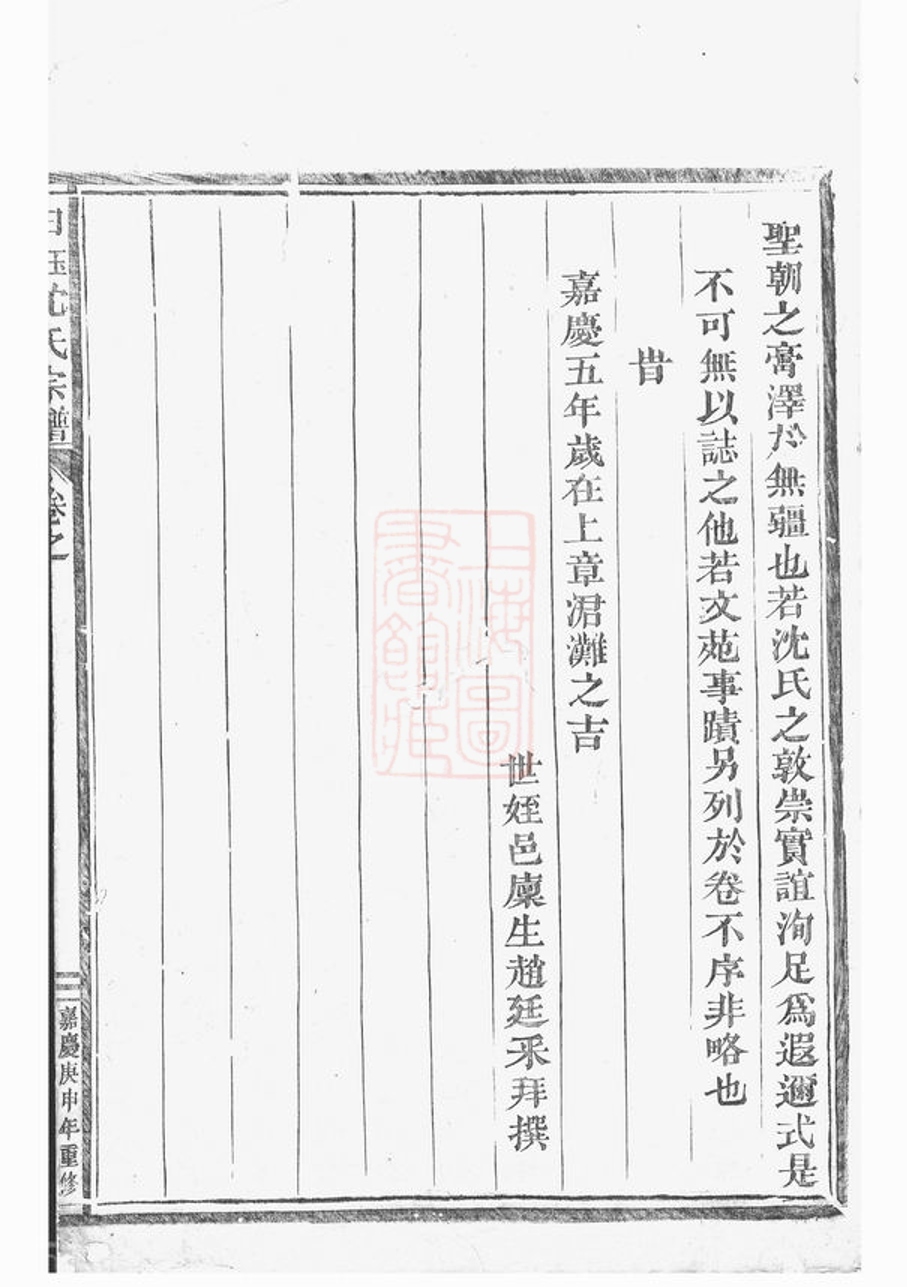 聖朝之膏澤於無疆也若沈氏之敦崇實誼洵足爲遐邇式是
不可無以誌之他若文苑事蹟另列於卷不序非略也
旹
嘉慶五年歲在上章涒灘之吉
世姪邑廩生趙廷釆拜撰
沈氏宗譜
卷之一
嘉慶庚申年重修
上海圖書館藏